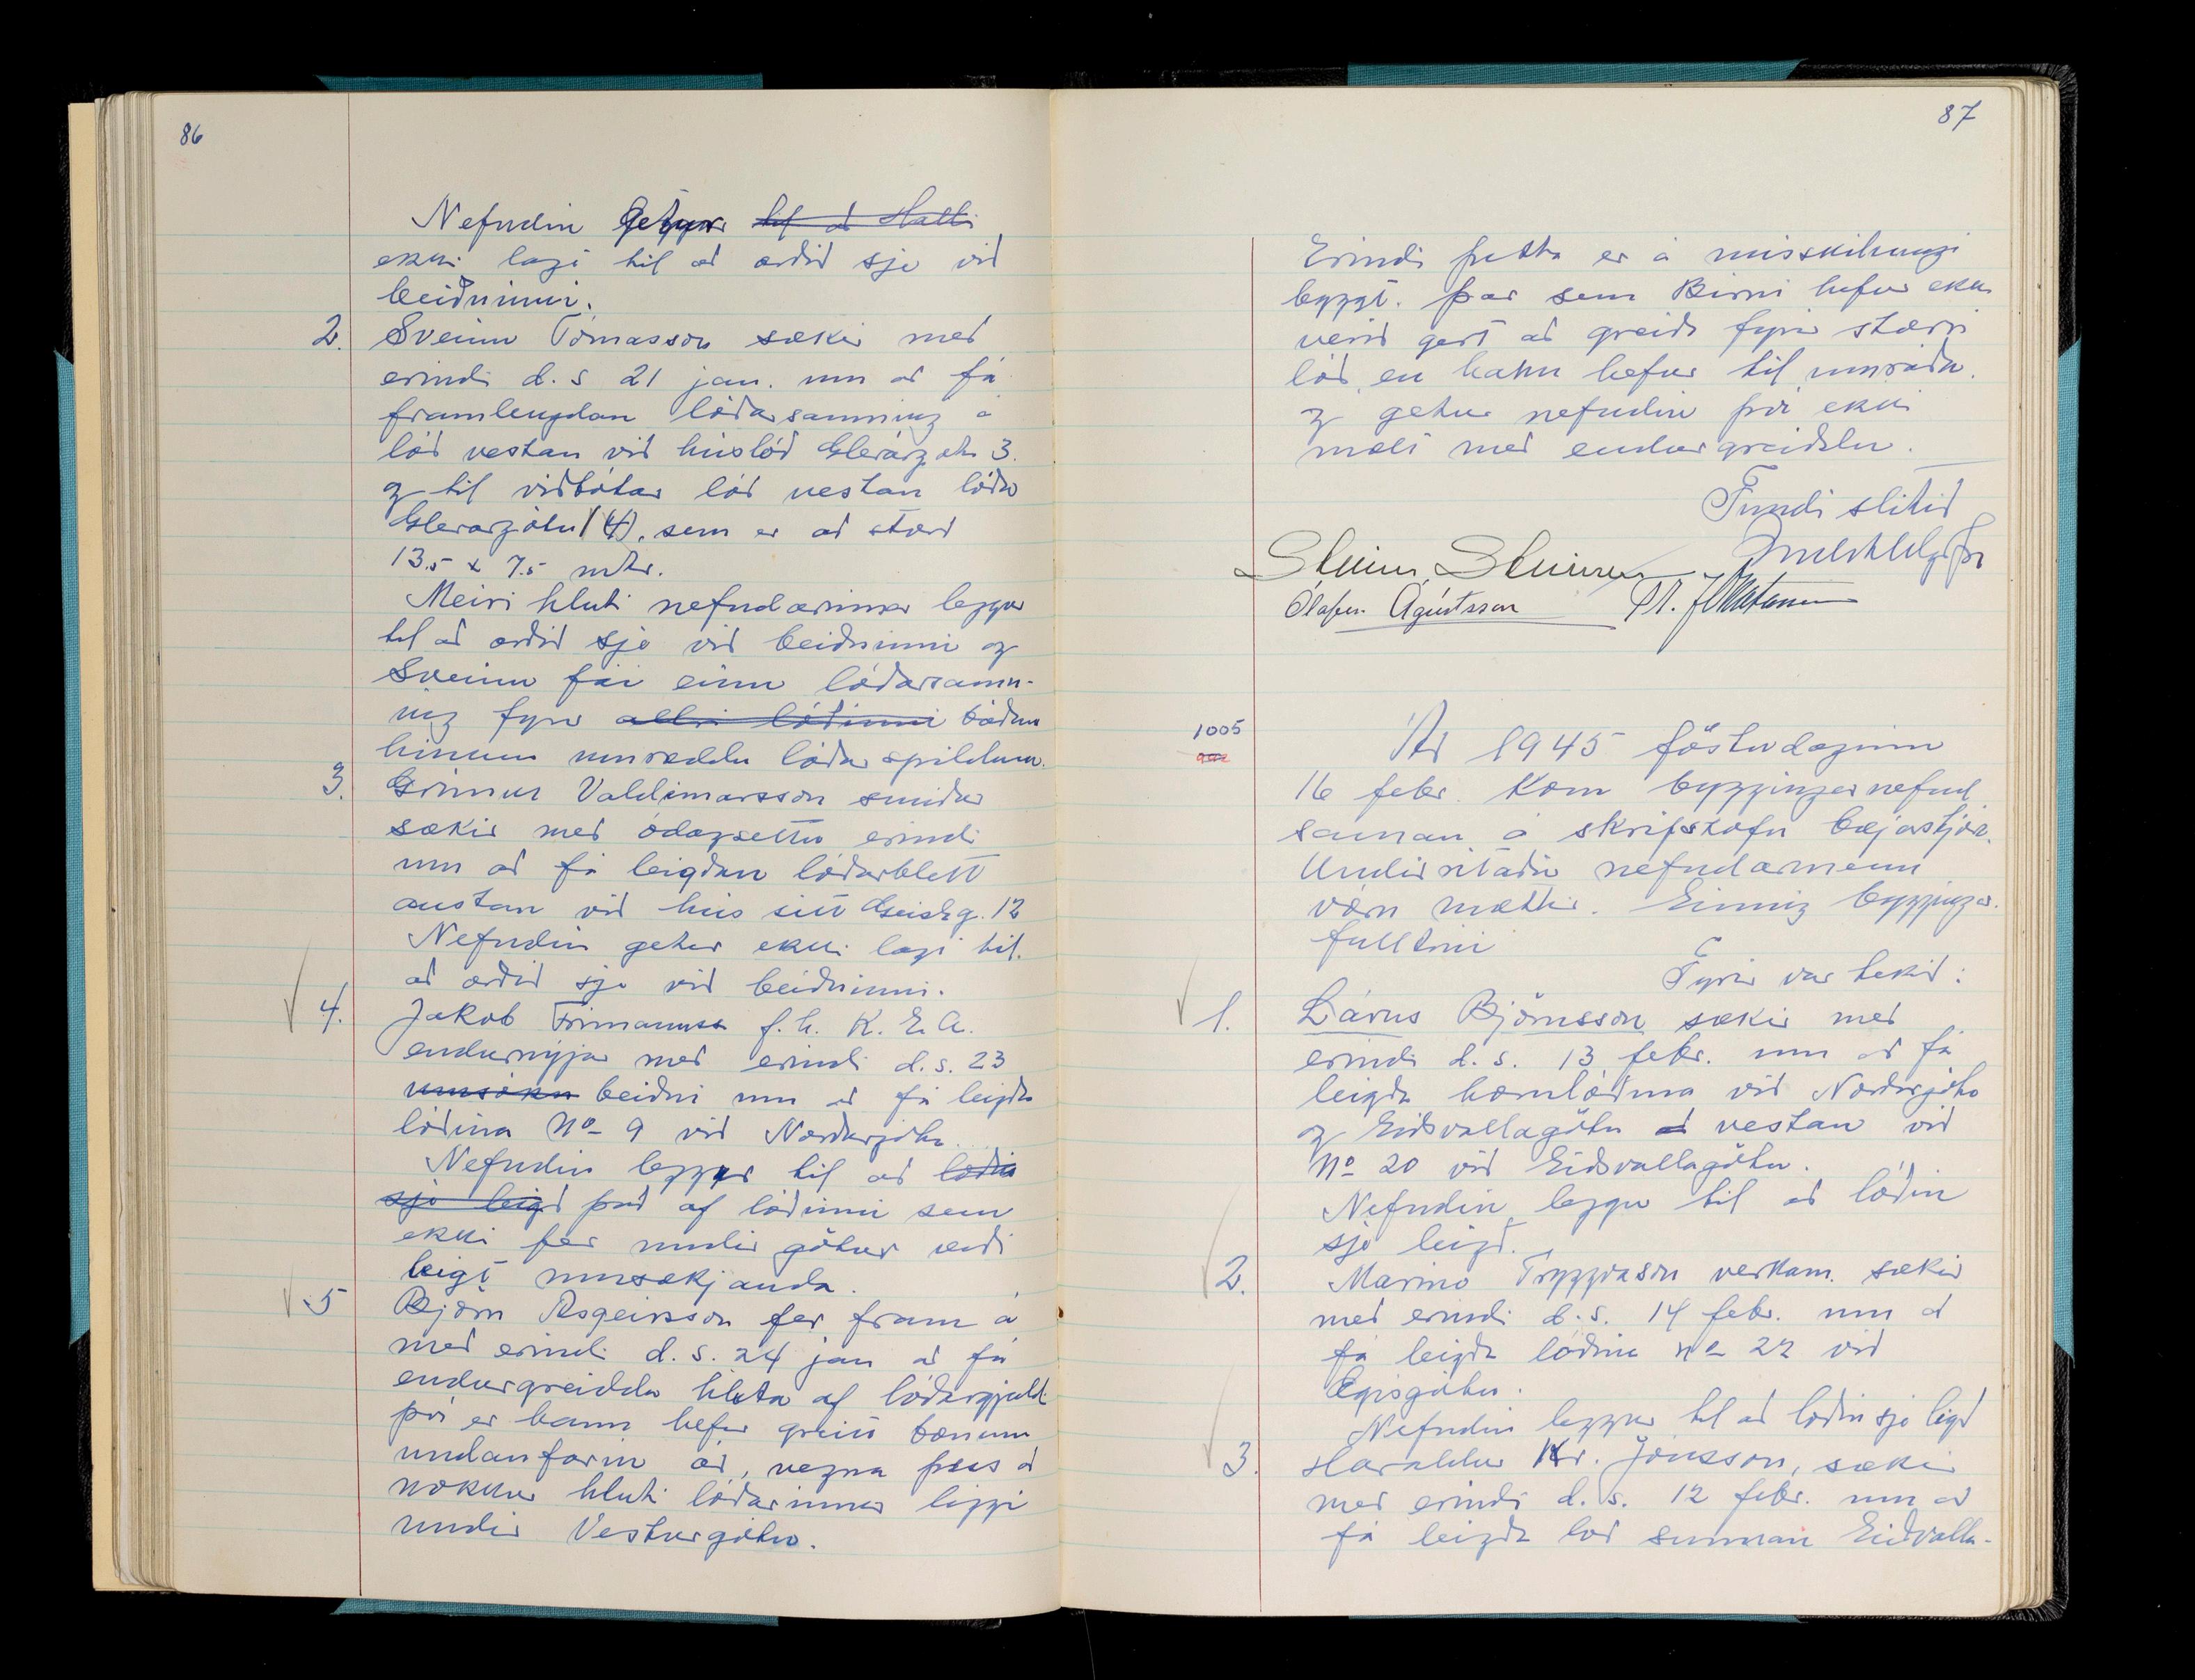 86
Nefndin getur til að Halli
ekki lagt til að orðið sje við
beiðninni.
2. Sveinn Tómasson sækir með
erindi d.s 21 jan. um að fá
framlengdan lóðarsamning á
lóð vestan við húslóð Glerárgötu 3.
og til viðbótar lóð vestan lóðar
Glerárgötu 1 (4), sem er að stærð
13.5 x 7.5 mtr.
Meiri hluti nefndarinnar leggur
til að orðið sje við beiðninni og
Sveinn fái einn lóðarsamn-
ing fyrir allri lóðinni báðum
hinum umræddu lóðarspildum.
3. Grímur Valdimarsson smiður
sækir með ódagsettu erindi
um að fá leigðan lóðarblett
austan við hús sitt Geislag. 12
Nefndin getur ekki lagt til.
að orðið sje við beiðninni.
4. Jakob Frímannss f.h. K.E.A.
endurnýjar með erindi d.s. 23
umsókn beiðni um að fá leigða
lóðina No 9 við Norðurgötu.
Nefndin leggur til að lóðin
sje leigð það af lóðinni sem
ekki fer undir götur verði
leigt umsækjanda.
5 Björn Ásgeirsson fer fram á
með erindi d.s. 24 jan að fá
endurgreiddan hluta af lóðargjaldi
því er hann hefur greitt bænum
undanfarin ár, vegna þess að
nokkur hluti lóðarinnar liggi
undir Vesturgötu.
87
Erindi þetta er á misskilningi
byggt. þar sem Birni hefur ekki
verið gert að greiða fyrir stærri
lóð en hann hefur til umráða.
og getur nefndin því ekki
mælt með endurgreiðslu.
Fundi slitið
Steinn Steinsen
Ólafur Ágústsson
1005
Ár 1945 föstudaginn
16 febr. kom byggingarnefnd
saman á skrifstofu bæjarstjóra.
Undirritaðir nefndarmenn
voru mættir. Einnig bygginga-
fulltrúi
Fyrir var tekið:
1. Lárus Björnsson sækir með
erindi d.s. 13 febr. um að fá
leigða hornlóðina við Norðurgötu
og Eiðsvallagötu að vestan við
No 20 við Eiðsvallagötu.
Nefndin leggur til að lóðin
sje leigð.
2. Marino Tryggvason verkam. sækir
með erindi d.s. 14 febr. um að
fá leigða lóðina no 22 við
Ægisgötu.
Nefndin leggur til að lóðin sje leigð
3. Haraldur Kr. Jónsson, sækir
með erindi d.s. 12 febr. um að
fá leigða lóð sunnan Eiðsvalla-